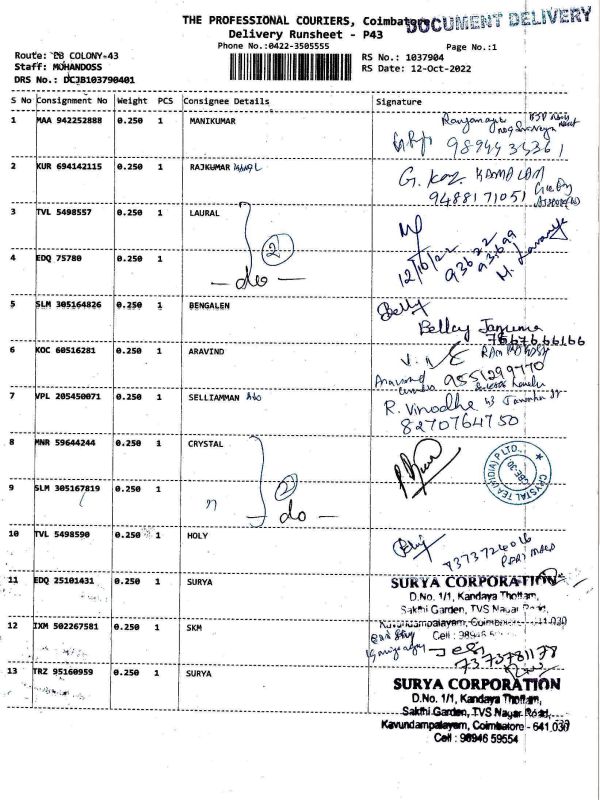 THE PROFESSIONAL COURIERS, Coimbatore
DOCUMENT DELIVERY
Delivery Runsheet - P43
Phone No.:0422-3505555
Page No.:1
Route: CB COLONY-43
RS No.: 1037904
Staff: MOHANDOSS
RS Date: 12-Oct-2022
DRS No.: DCJB103790401
S No Consignment No Weight PCS Consignee Details Signature
1 MAA 942252888 0.250 1 MANIKUMAR
2 KUR 694142115 0.250 1 RAJKUMAR
G. KAMALAM
9488171051
3 TVL 5498557 0.250 1 LAURAL
2
12/10/22
4 EDQ 75780 0.250 1
- do -
5 SLM 305164826 0.250 1 BENGALEN
7667666166
6 KOC 60516281 0.250 1 ARAVIND
9551299770
7 VPL 205450071 0.250 1 SELLIAMMAN
R. Vinodha
8270764750
8 MNR 59644244 0.250 1 CRYSTAL
CRYSTAL TEA (INDIA) P LTD. CBE-30
9 SLM 305167819 0.250 1
2
- do -
10 TVL 5498590 0.250 1 HOLY
11 EDQ 25101431 0.250 1 SURYA
SURYA CORPORATION
D.No. 1/1, Kandaya Thottam,
Sakthi Garden, TVS Nagar Road,
12 IXM 502267581 0.250 1 SKM
Kavundampalayam, Coimbatore - 641 030
Cell : 98946 5
7373781178
13 TRZ 95160959 0.250 1 SURYA
SURYA CORPORATION
D.No. 1/1, Kandaya Thottam,
Sakthi Garden, TVS Nagar Road,
Kavundampalayam, Coimbatore - 641 030
Cell : 98946 59554